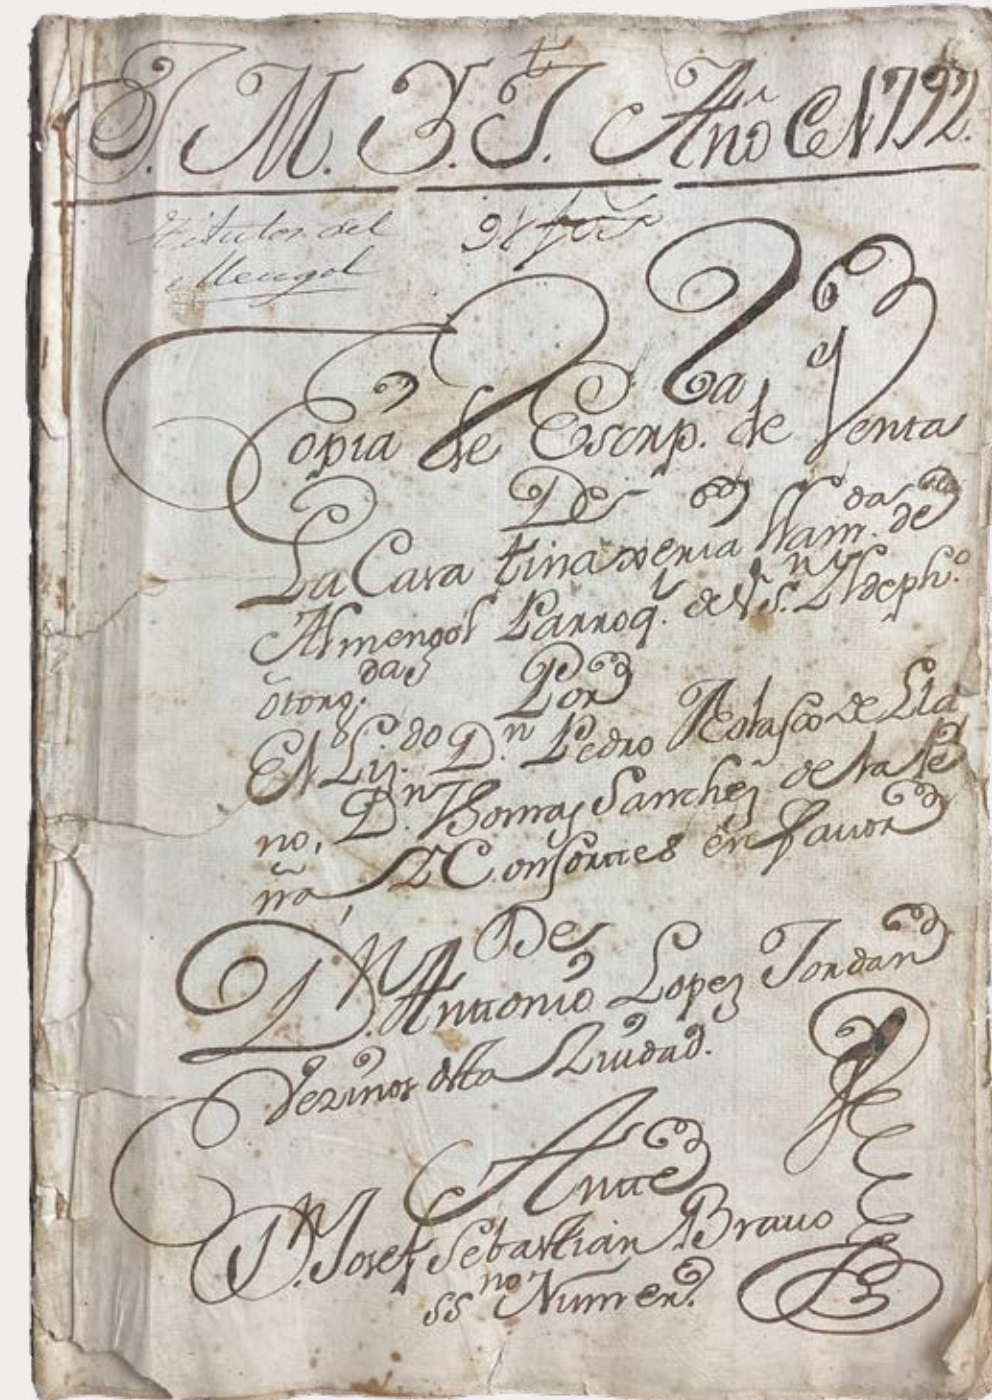 J. M. B. J. Año E 1792.
Titulos del
Mengol
Copia de Escrip.ra de Venta
De
La Casa tina xeria llam.da de
Almengol Parroq.l de S.n Yldeph.o
otorg.da Por
El Liz.do D.n Pedro Nolasco de Lla
no, D.n Thomas Sanchez de la Pe
ña, Y Consortes en favor
De
D.n Antonio Lopez Jordan
Vezinos desta Ziudad.
Ante
D.n Josef Sebastian Bravo
SS.no Numer.o